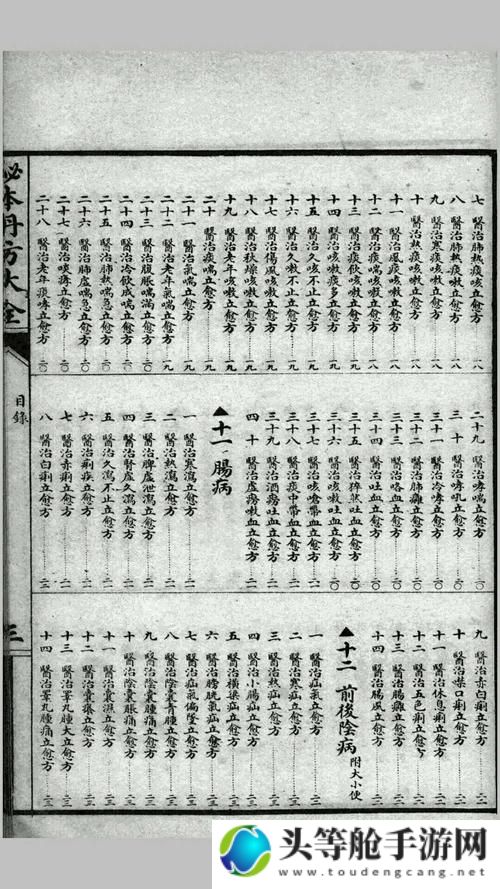 七 醫治肺熱痰咳立愈方 一八
八 醫治肺熱痰嗽立愈方 一八
九 醫治寒痰咳嗽立愈方 一八
十 醫治熱痰咳嗽立愈方 一八
十一 醫治風痰咳嗽立愈方 一八
十二 醫治痰喘咳嗽立愈方 一八
十三 醫治痰飲咳嗽立愈方 一八
十四 醫治咳嗽痰多立愈方 一九
十五 醫治久咳不止立愈方 一九
十六 醫治久嗽不止立愈方 一九
十七 醫治傷風咳嗽立愈方 一九
十八 醫治秋燥咳嗽立愈方 一九
十九 醫治老年咳嗽立愈方 一九
二十 醫治痰喘立愈方 一九
二十一 醫治氣喘立愈方 一九
二十二 醫治老年氣喘立愈方 一九
二十三 醫治腹脹喘滿立愈方 二〇
二十四 醫治冷飲成喘立愈方 二〇
二十五 醫治肺熱喘急立愈方 二〇
二十六 醫治肺虛喘急立愈方 二〇
二十七 醫治痰哮立愈方 二〇
二十八 醫治老年痰哮立愈方 二〇
二十九 醫治哮喘立愈方 二〇
三十 醫治哮吼立愈方 二〇
三十一 醫治冷哮立愈方 二〇
三十二 醫治肺癰立愈方 二〇
三十三 醫治咯血立愈方 二〇
三十四 醫治吐血立愈方 二〇
三十五 醫治猝然吐血立愈方 二〇
三十六 醫治咳嗽吐血立愈方 二〇
三十七 醫治咳嗆帶血立愈方 二一
三十八 醫治痰中帶血立愈方 二一
三十九 醫治酒癆吐血立愈方 二一
四十 醫治虛癆嗽血立愈方 二一
▲十一 腸病
一 醫治寒瀉立愈方 二一
二 醫治熱瀉立愈方 二一
三 醫治脾虛泄瀉立愈方 二一
四 醫治腎虛久瀉立愈方 二一
五 醫治久瀉不止立愈方 二一
六 醫治痢疾立愈方 二一
七 醫治赤痢立愈方 二一
八 醫治白痢立愈方 二二
九 醫治赤白痢立愈方 二二
十 醫治噤口痢立愈方 二二
十一 醫治休息痢立愈方 二二
十二 醫治五色痢立愈方 二二
十三 醫治腸癰立愈方 二二
十四 醫治腸風立愈方 二二
▲十二 前後陰病 附大小便
一 醫治疝氣立愈方 二三
二 醫治寒疝立愈方 二三
三 醫治熱疝立愈方 二三
四 醫治小腸疝立愈方 二三
五 醫治橫梁疝立愈方 二三
六 醫治膀胱氣疝立愈方 二三
七 醫治疝氣偏墜立愈方 二三
八 醫治陰囊青腫立愈方 二三
九 醫治陰囊腫痛立愈方 二三
十 醫治陰囊脹痛立愈方 二三
十一 醫治囊濕立愈方 二三
十二 醫治囊癢立愈方 二三
十三 醫治睪丸腫大立愈方 二三
十四 醫治睪丸腫痛立愈方 二三
祕本丹方大全
目錄
三
头等舱手游网
www.toudengcang.net